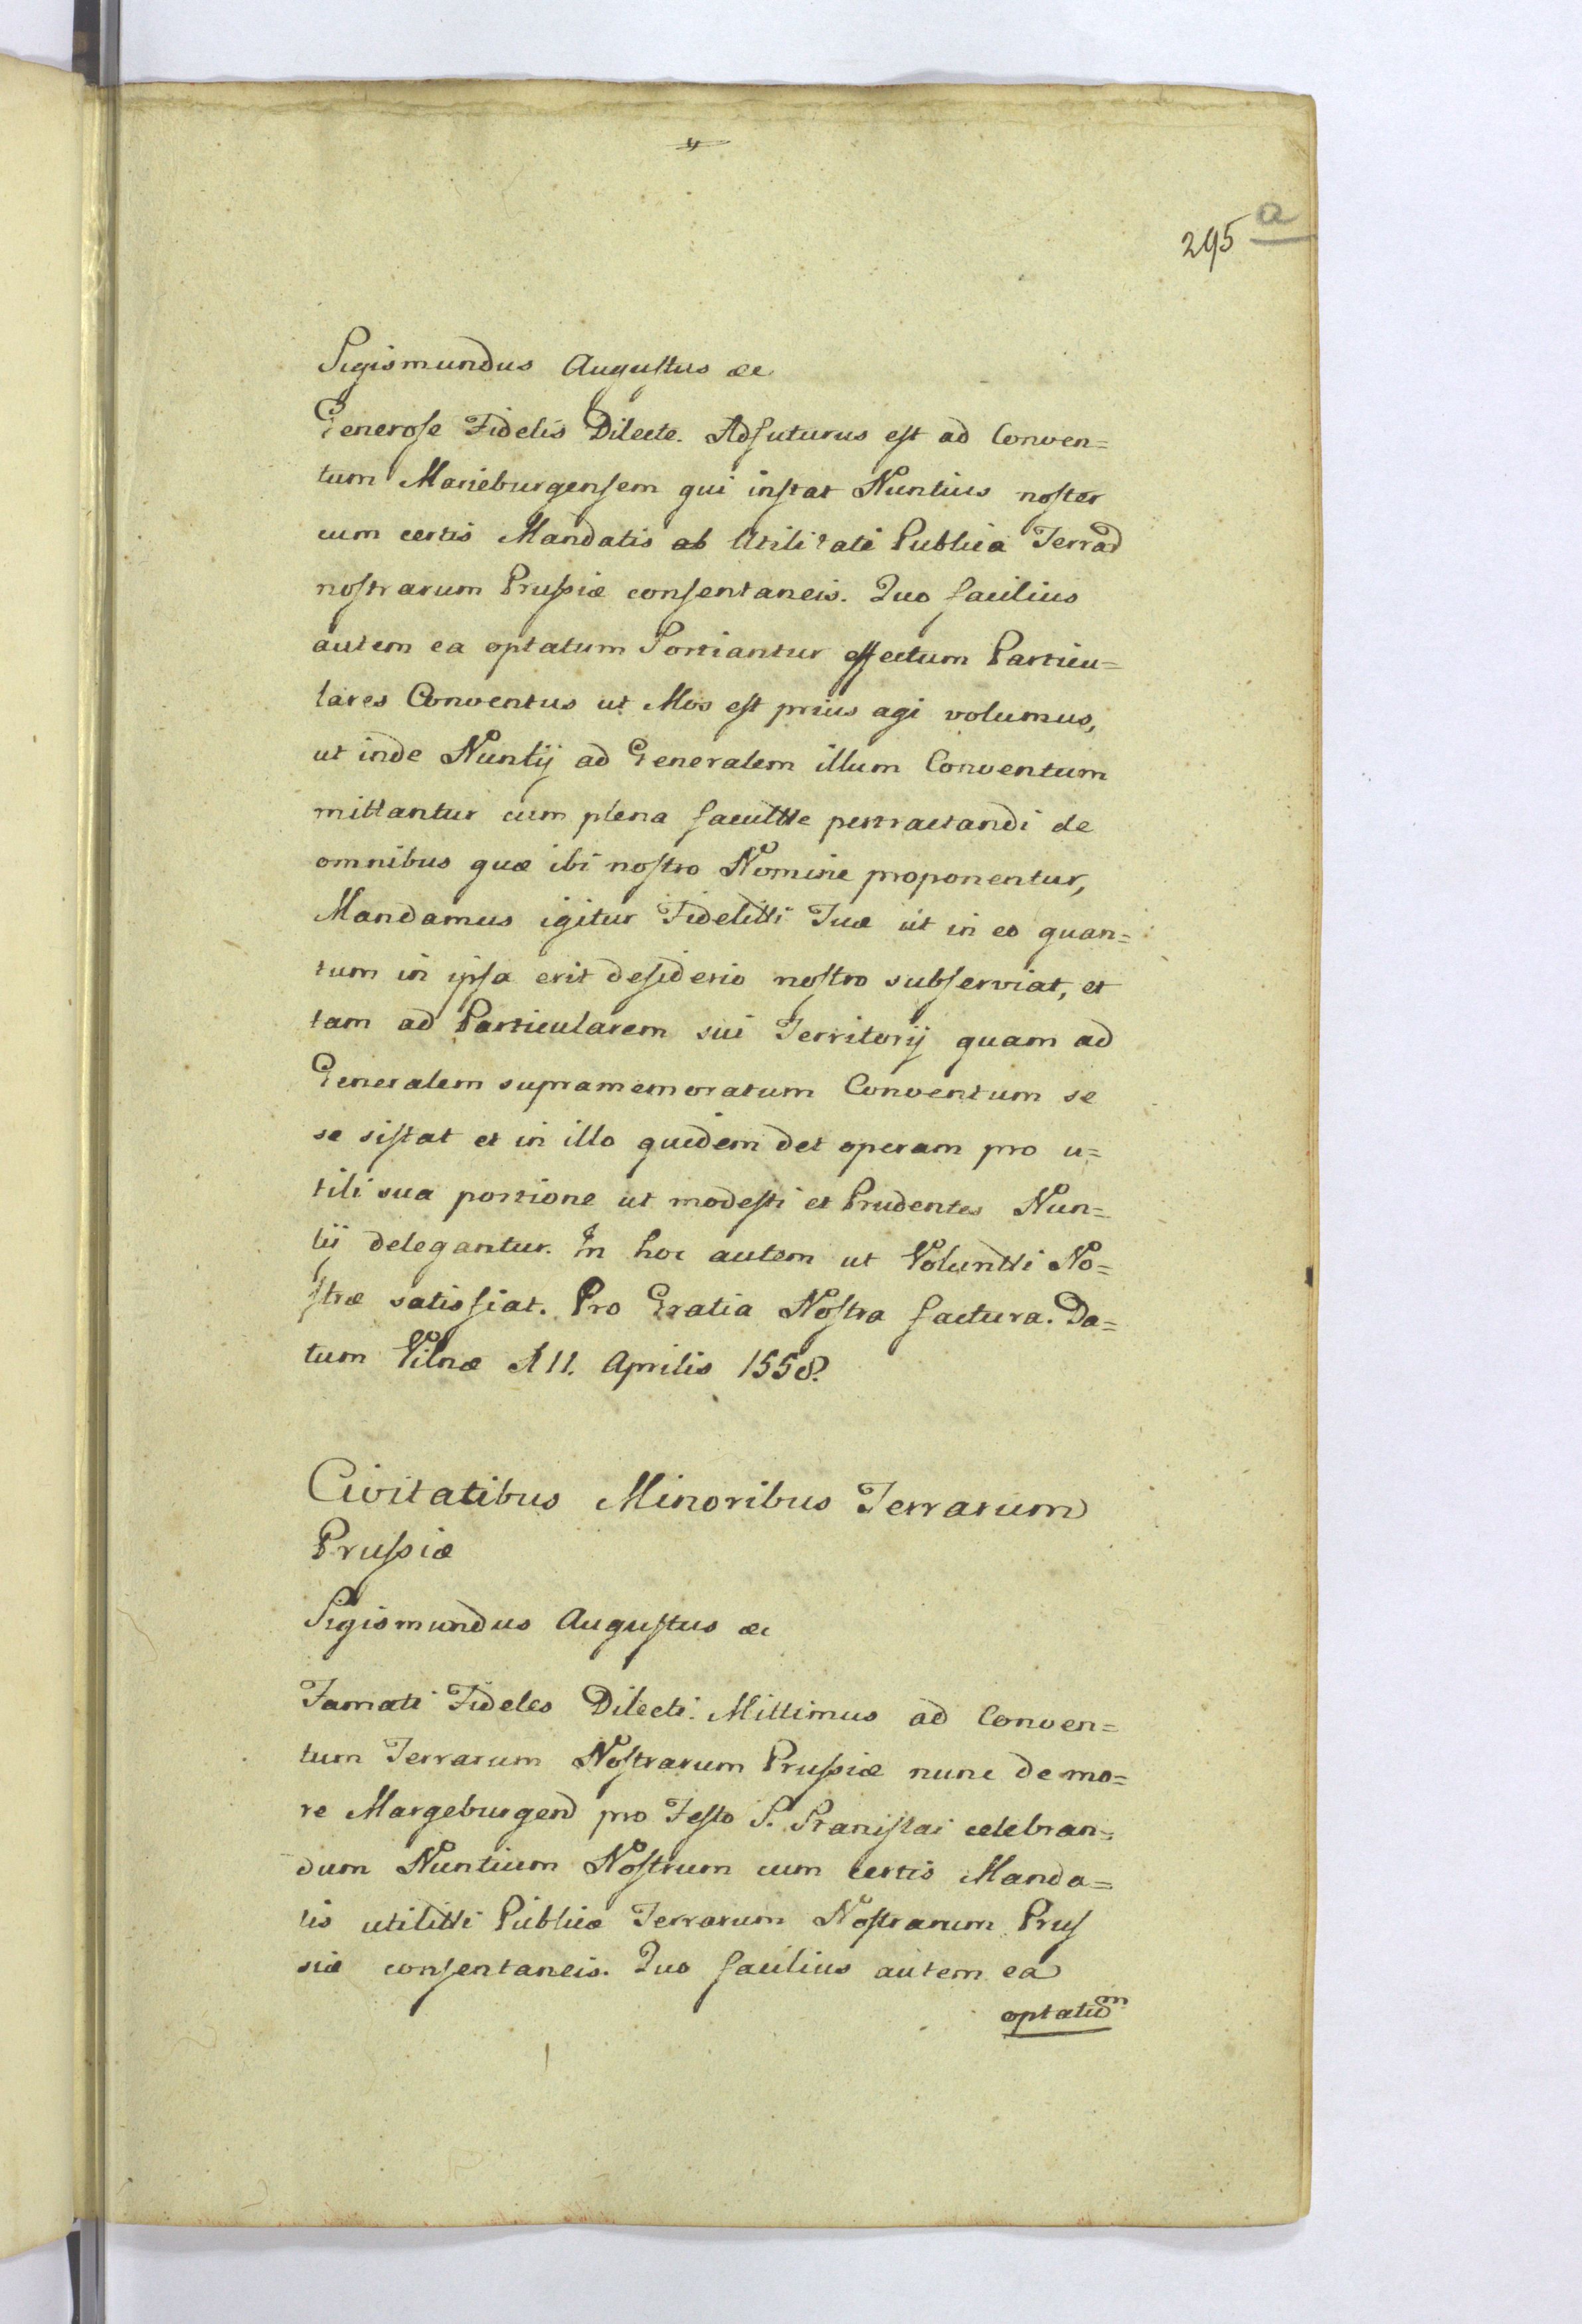 295 a
Sigismundus Augustus &c
Generose Fidelis Dilecte. Adfuturus est ad Conven=
tum Marieburgensem qui instat Nuntius noster
cum certis Mandatis ab Utilitati Publica Terrar
nostrarum Prussiæ consentaneis. Quo facilius
autem ea optatum Sortiantur effectum Particu=
lares Conventus ut Mos est prius agi volumus,
ut inde Nuntij ad Generalem illum Conventum
mittantur cum plena facultte pertractandi de
omnibus quæ ibi nostro Nomine proponentur,
Mandamus igitur Fidelitti Tuæ ut in eo quan=
tum in ipsa erit desiderio nostro subserviat, et
tam ad Particularem sui Territorij quam ad
Generalem supramemoratum Conventum se
se sistat et in illo quidem det operam pro u=
tili sua portione ut modesti et Prudentes Nun=
tii delegantur. In hoc autem ut Voluntti No=
stræ satisfiat. Pro Gratia Nostra factura. Da=
tum Vilnæ d 11. Aprilis 1558.
Civitatibus Minoribus Terrarum
Prussiæ
Sigismundus Augustus &c
Famati Fideles Dilecti. Mittimus ad Conven=
tum Terrarum Nostrarum Prussiæ nunc de mo=
re Margeburgens pro Festo S. Stanislai celebran=
dum Nuntium Nostrum cum certis Manda=
tis utilitti Publicæ Terrarum Nostrarum Prus
siæ consentaneis. Quo facilius autem ea
optatum